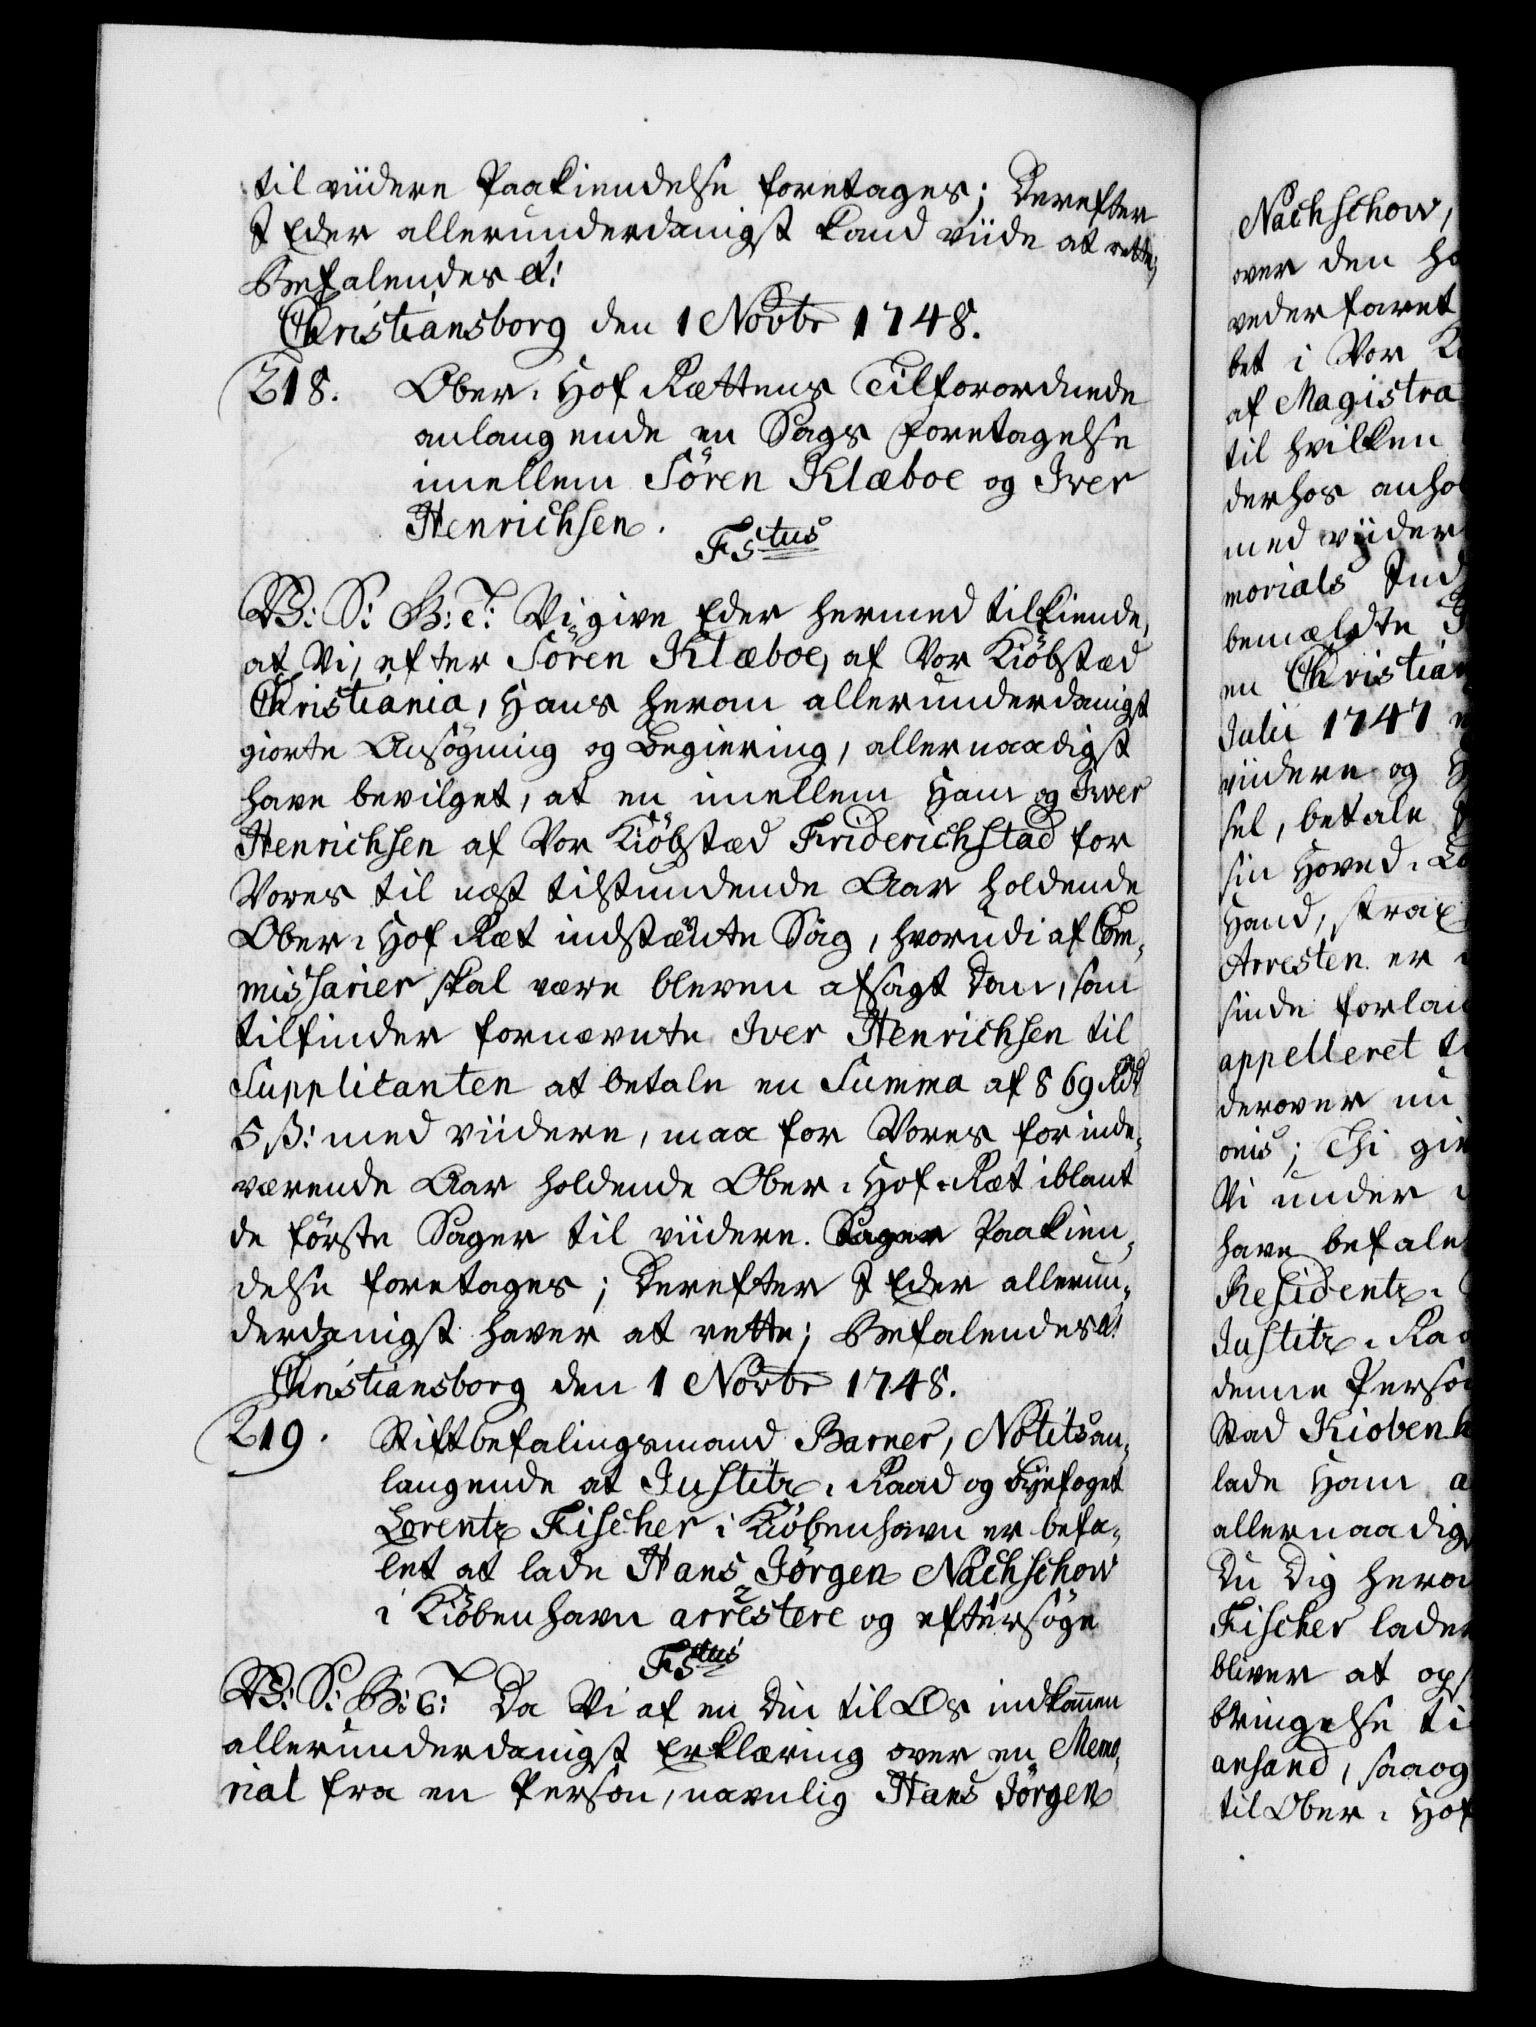 til viidere Paakiendelse foretages; Derefter
I Eder allerunderdanigst kand viide at rette;
Befalendes et!
Christiansborg den 1 Novbr 1748.
218. Ober-Hof Rættens Tilforordnede
anlangende en Sags foretagelse
imellem Sören Klæboe og Iver
Henrichsen.
Fstus
W: S: G: T: Vi give Eder hermed tilkiende,
at Vi, efter Sören Klæboe, af Vor Kiöbstæd
Christiania, Hans herom allerunderdanigst
giorte Ansøgning og Begiering, allernaadigst
have bevilget, at en imellem Ham og Iver
Henrichsen af Vor Kiöbstæd Friderichstad for
Vores til næst tilstundende Aar holdende
Ober-Hof Ræt indstævnte Sag, hvorudi af Com-
missarier skal være bleven afsagt Dom, som
tilfinder fornævnte Iver Henrichsen til
Supplicanten at betale en Summa af 869 Rdr
5 ß: med viidere, maa for Vores for inde-
værende Aar holdende Ober-Hof-Ræt iblant
de förste Sager til viidere Sager Paakien-
delse foretages; Derefter I Eder allerun-
derdanigst haver at rette; Befalendes et!
Christiansborg den 1 Novbr 1748.
219. Stiftbefalingsmand Barner, Notits an-
langende at Justitz-Raad og Byefoget
Lorentz Fischer i Kiöbenhavn er befa-
let at lade Hans Jörgen Nachschow
i Kiöbenhavn arrestere og eftersöge
Fstus
W: S: G: T: Da Vi af en Din til Os indkommen
allerunderdanigst Erklæring over en Memo-
rial fra en Person, navnlig Hans Jörgen
Nachschow,
over den
vederfaret
bet i Vor
af Magistra
til hvilken
derhos anhol
med viider
morials Ind
bemældte
en Christian
Julii 1747
viidere og
sel, betale
sin Hoved-
Haand, strax
Arresten er
sinde forlan
appelleret ti
derover nu
onis; Thi giv
Vi under
have befale
Residentz-
Justitz-Raa
denne Person
Stad Kiobenh
lade Ham a
allernaadig
Du Dig herom
Fischer lader
bliver at op
bringelse ti
anhand, saa og
til Ober-Hof